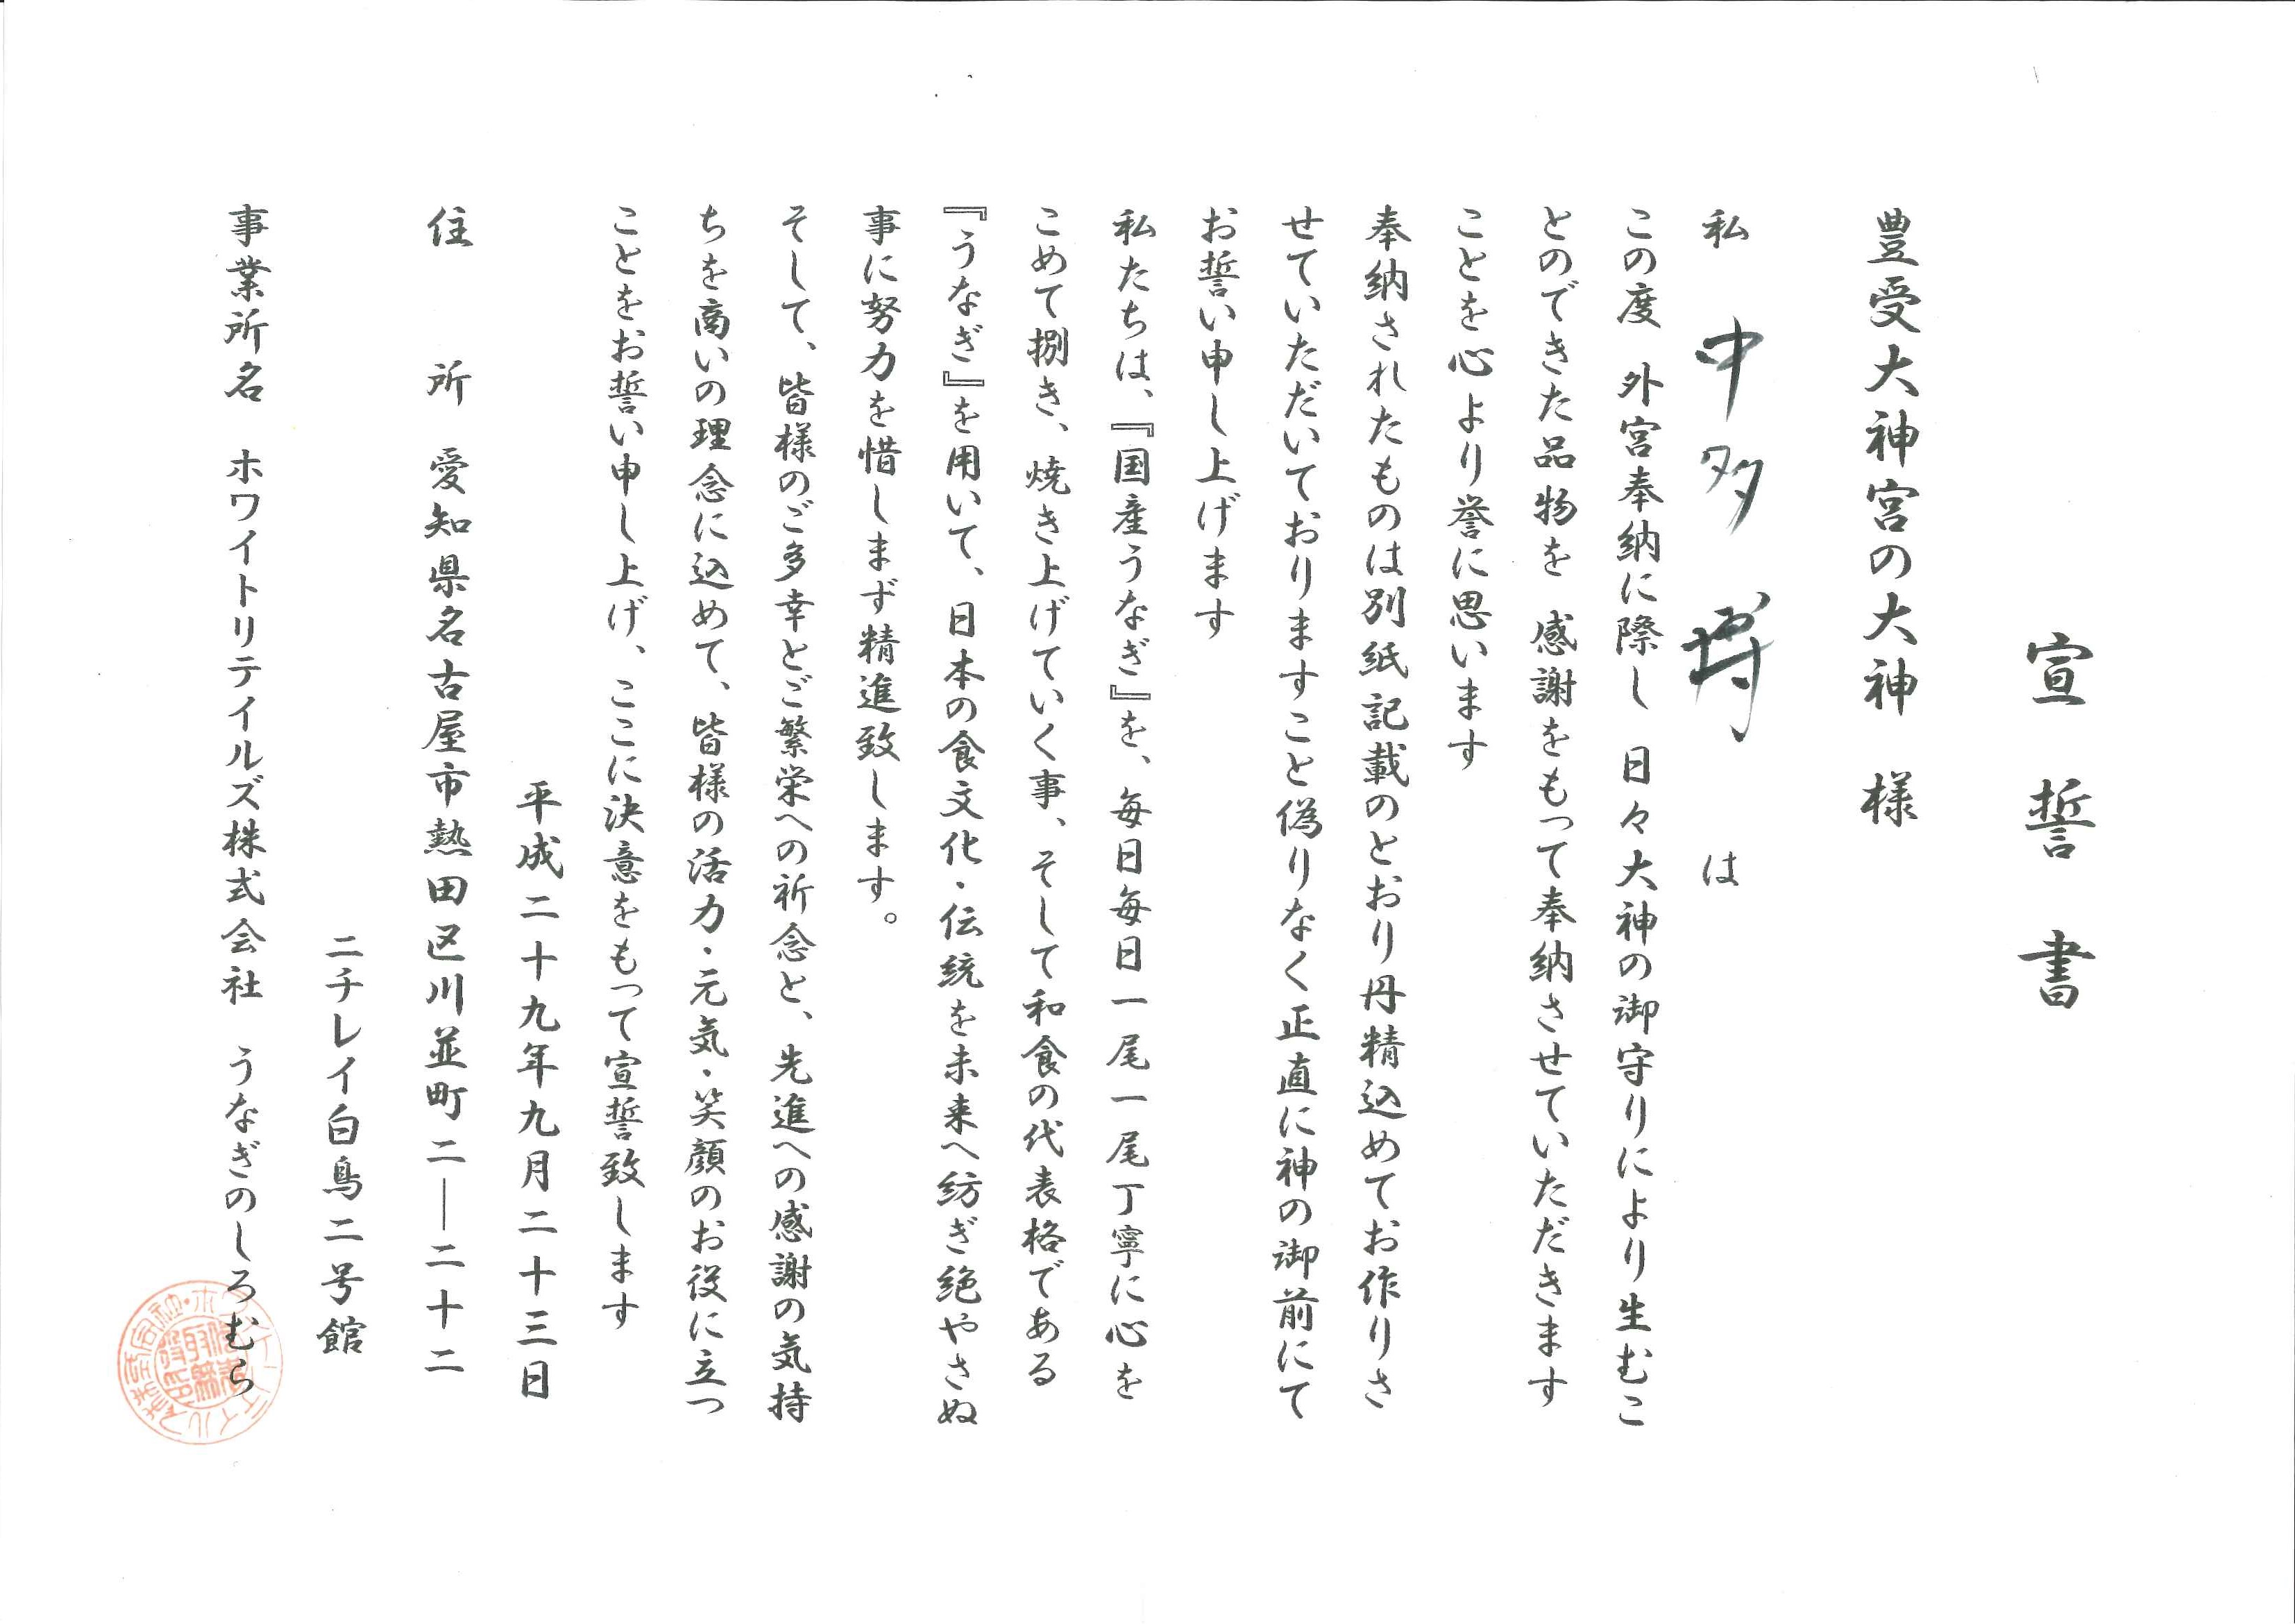 宣誓書
豊受大神宮の大神 様
私 中多 博 は
この度 外宮奉納に際し 日々大神の御守りにより生むこ
とのできた品物を 感謝をもって奉納させていただきます
ことを心より誉に思います
奉納されたものは別紙記載のとおり丹精込めてお作りさ
せていただいておりますこと偽りなく正直に神の御前にて
お誓い申し上げます
私たちは、『国産うなぎ』を、毎日毎日一尾一尾丁寧に心を
こめて捌き、焼き上げていく事、そして和食の代表格である
『うなぎ』を用いて、日本の食文化・伝統を未来へ紡ぎ絶やさぬ
事に努力を惜しまず精進致します。
そして、皆様のご多幸とご繁栄への祈念と、先進への感謝の気持
ちを商いの理念に込めて、皆様の活力・元気・笑顔のお役に立つ
ことをお誓い申し上げ、ここに決意をもって宣誓致します
平成二十九年九月二十三日
住 所 愛知県名古屋市熱田区川並町二―二十二
ニチレイ白鳥二号館
事業所名 ホワイトリテイルズ株式会社 うなぎのしろむら